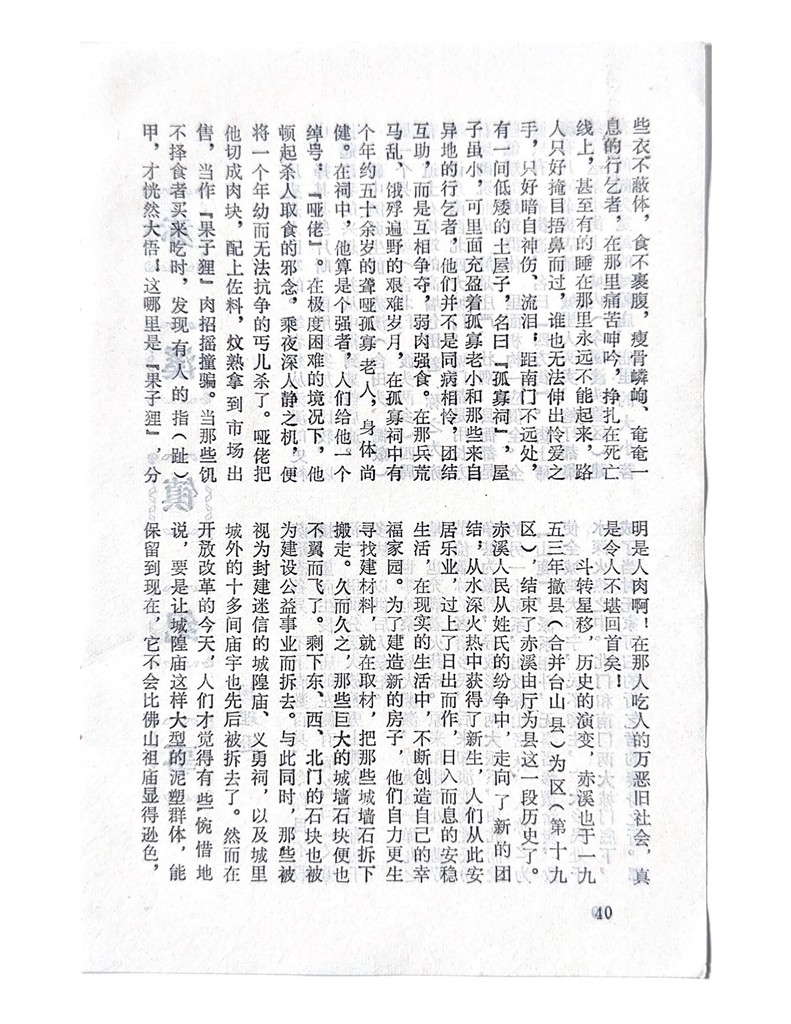 些衣不蔽体，食不裹腹，瘦骨嶙峋、奄奄一
息的行乞者，在那里痛苦呻吟，挣扎在死亡
线上，甚至有的睡在那里永远不能起来，路
人只好掩目捂鼻而过，谁也无法伸出怜爱之
手，只好暗自神伤、流泪，距南门不远处，
有一间低矮的土屋子，名曰『孤寡祠』，屋
子虽小，可里面充盈着孤寡老小和那些来自
异地的行乞者，他们并不是同病相怜，团结
互助，而是互相争夺，弱肉强食。在那兵荒
马乱、饿殍遍野的艰难岁月，在孤寡祠中有
个年约五十余岁的聋哑孤寡老人，身体尚
健。在祠中，他算是个强者，人们给他一个
绰号：『哑佬』。在极度困难的境况下，他
顿起杀人取食的邪念，乘夜深人静之机，便
将一个年幼而无法抗争的丐儿杀了。哑佬把
他切成肉块，配上佐料，炆熟拿到市场出
售，当作『果子狸』肉招摇撞骗。当那些饥
不择食者买来吃时，发现有人的指（趾）
甲，才恍然大悟！这哪里是『果子狸』，分
明是人肉啊！在那人吃人的万恶旧社会，真
是令人不堪回首矣！
斗转星移，历史的演变，赤溪也于一九
五三年撤县（合并台山县）为区（第十九
区），结束了赤溪由厅为县这一段历史了。
赤溪人民从姓氏的纷争中，走向了新的团
结，从水深火热中获得了新生，人们从此安
居乐业，过上了日出而作，日入而息的安稳
生活，在现实的生活中，不断创造自己的幸
福家园。为了建造新的房子，他们自力更生
寻找建材料，就在取材，把那些城墙石拆下
搬走。久而久之，那些巨大的城墙石块便也
不翼而飞了。剩下东、西、北门的石块也被
为建设公益事业而拆去。与此同时，那些被
视为封建迷信的城隍庙、义勇祠，以及城里
城外的十多间庙宇也先后被拆去了。然而在
开放改革的今天，人们才觉得有些惋惜地
说，要是让城隍庙这样大型的泥塑群体，能
保留到现在，它不会比佛山祖庙显得逊色，
40